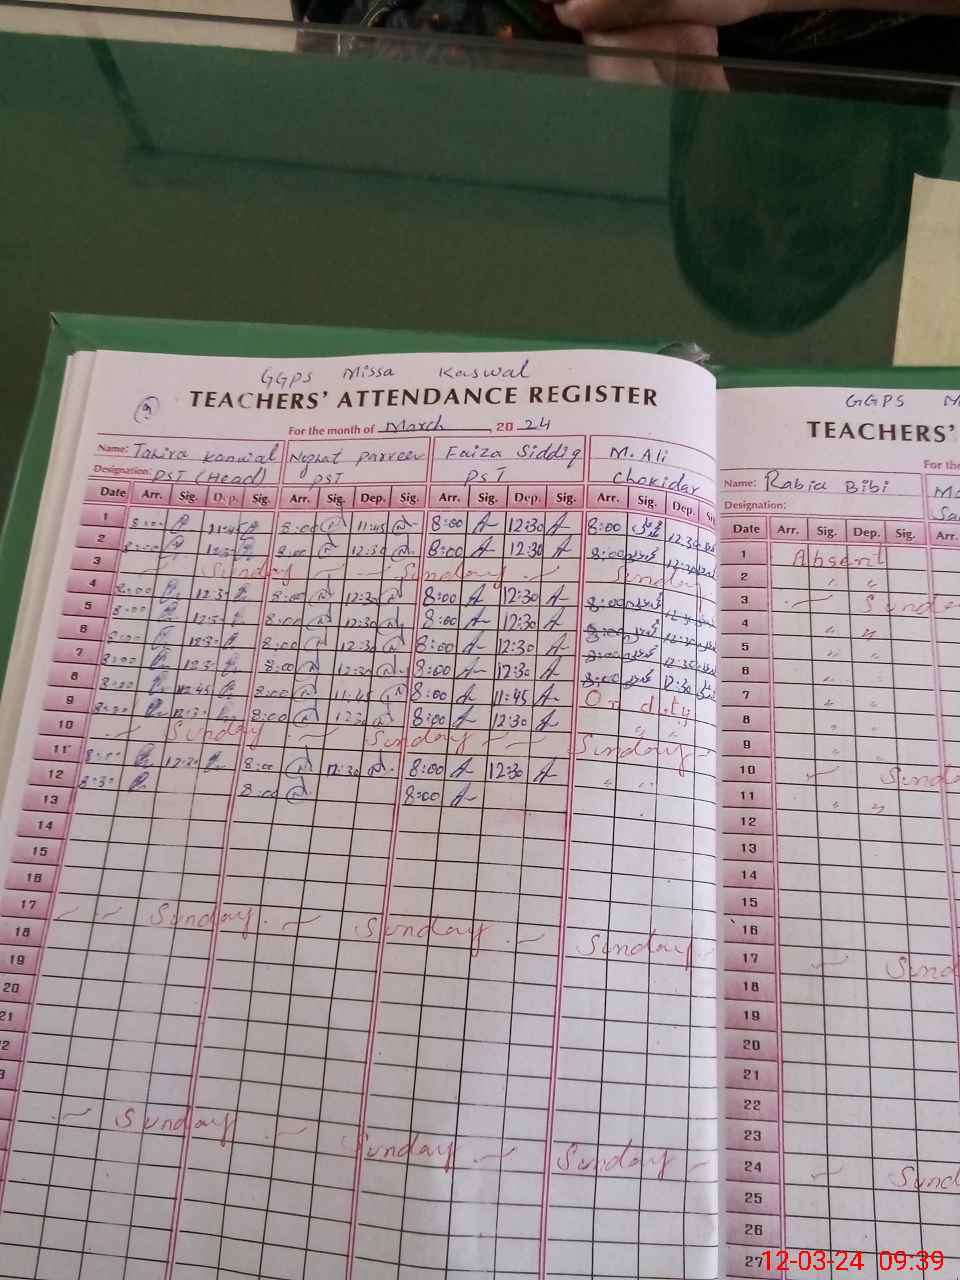 GGPS Missa Kaswal
9
TEACHERS' ATTENDANCE REGISTER
For the month of March, 20 24
Name: Tahira Kanwal Nozhat Parveen Faiza Siddiq M. Ali
Designation: PST (Head) PST PST Chokidar
Date Arr. Sig. Dep. Sig. Arr. Sig. Dep. Sig. Arr. Sig. Dep. Sig. Arr. Sig. Dep. Si
1 8:00 11:45 8:00 11:45 8:00 12:30 8:00 12:30
2 8:00 12:30 8:00 12:30 8:00 12:30 8:00 12:30
3 Sunday Sunday Sunday
4 8:00 12:30 8:00 12:30 8:00 12:30 8:00
5 8:00 12:30 8:00 12:30 8:00 12:30 8:00
6 8:00 12:30 8:00 12:30 8:00 12:30 8:00 12:30
7 8:00 12:30 8:00 12:30 8:00 12:30 8:00 12:30
8 8:00 11:45 8:00 11:45 8:00 11:45 On duty
9 8:30 12:30 8:00 12:30 8:00 12:30 " "
10 Sunday Sunday Sunday
11 8:00 12:30 8:00 12:30 8:00 12:30 " "
12 8:30 8:00 8:00
13
14
15
16
17 Sunday Sunday Sunday
18
19
20
21
2
3
Sunday Sunday Sunday
GGPS M
TEACHERS'
For the
Name: Rabia Bibi
Designation: Sa
Date Arr. Sig. Dep. Sig. Arr.
1 Absent
2 " "
3 Sunda
4 " "
5 " "
6 " "
7 " "
8 " "
9 " "
10 Sunda
11 " "
12
13
14
15
16
17 Sund
18
19
20
21
22
23
24 Sund
25
26
27
12-03-24 09:39